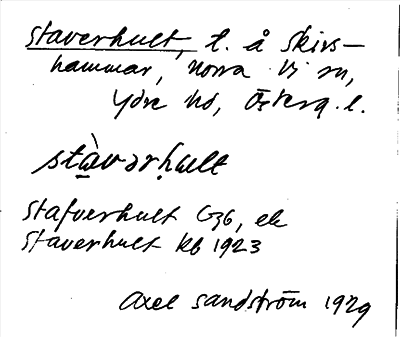 Staverhult, l. å Skirs-
hammar, Norra Vi sn,
Ydre hd, Österg. l.
stàvərhult
Stafverhult G36, ek
Staverhult kb 1923
Axel Sandström 1929